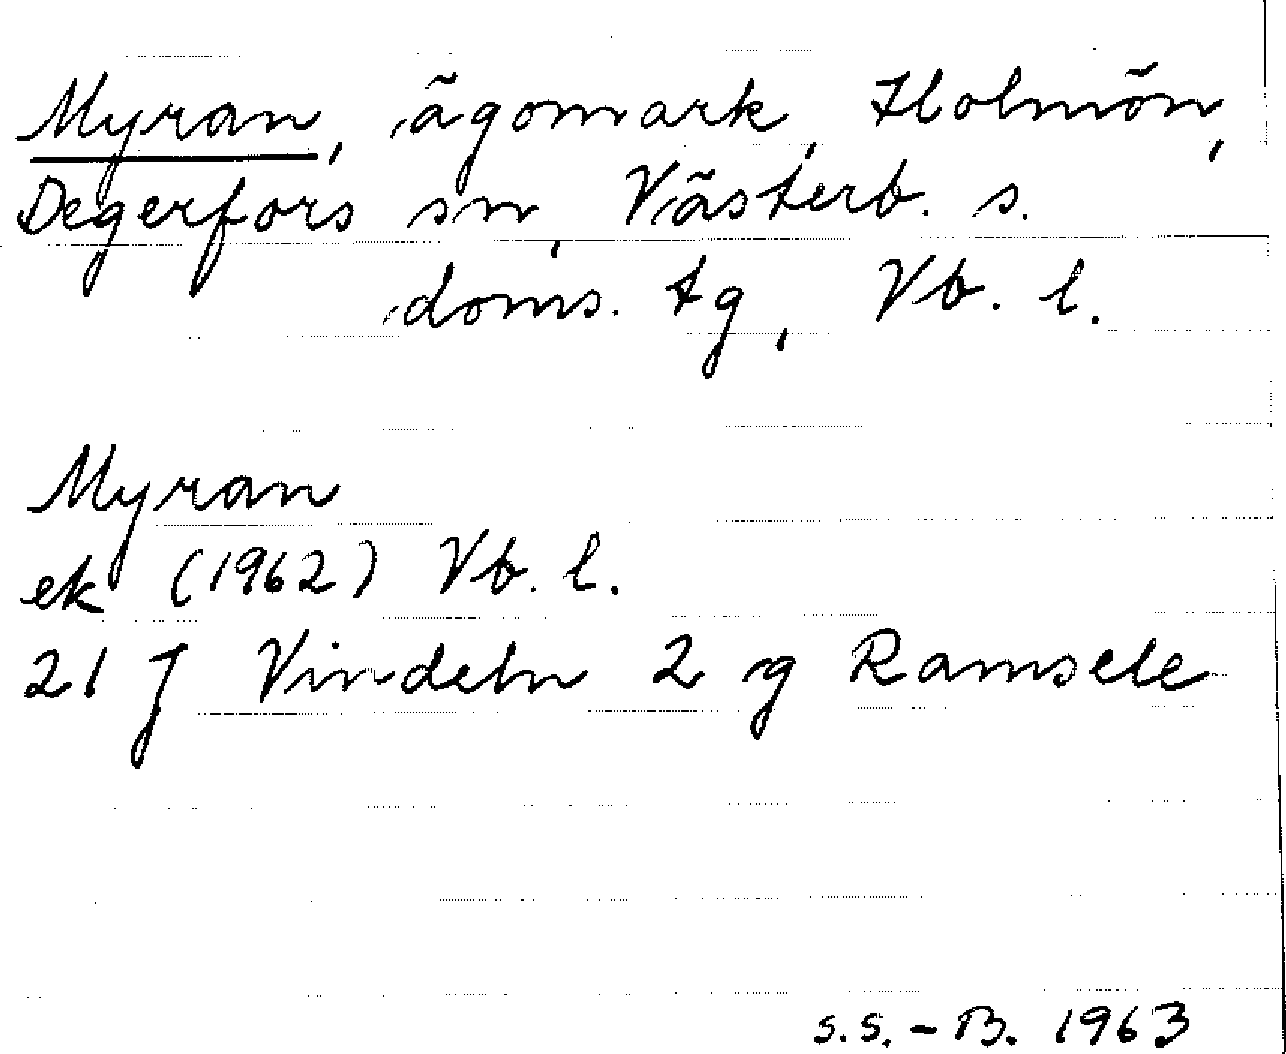 Myran, ägomark, Holmön,
Degerfors sn, Västerb. s.
doms. tg, Vb. l.
Myran
ek (1962) Vb. l.
21 J Vindeln 2 g Ramsele
S.S. - B. 1963